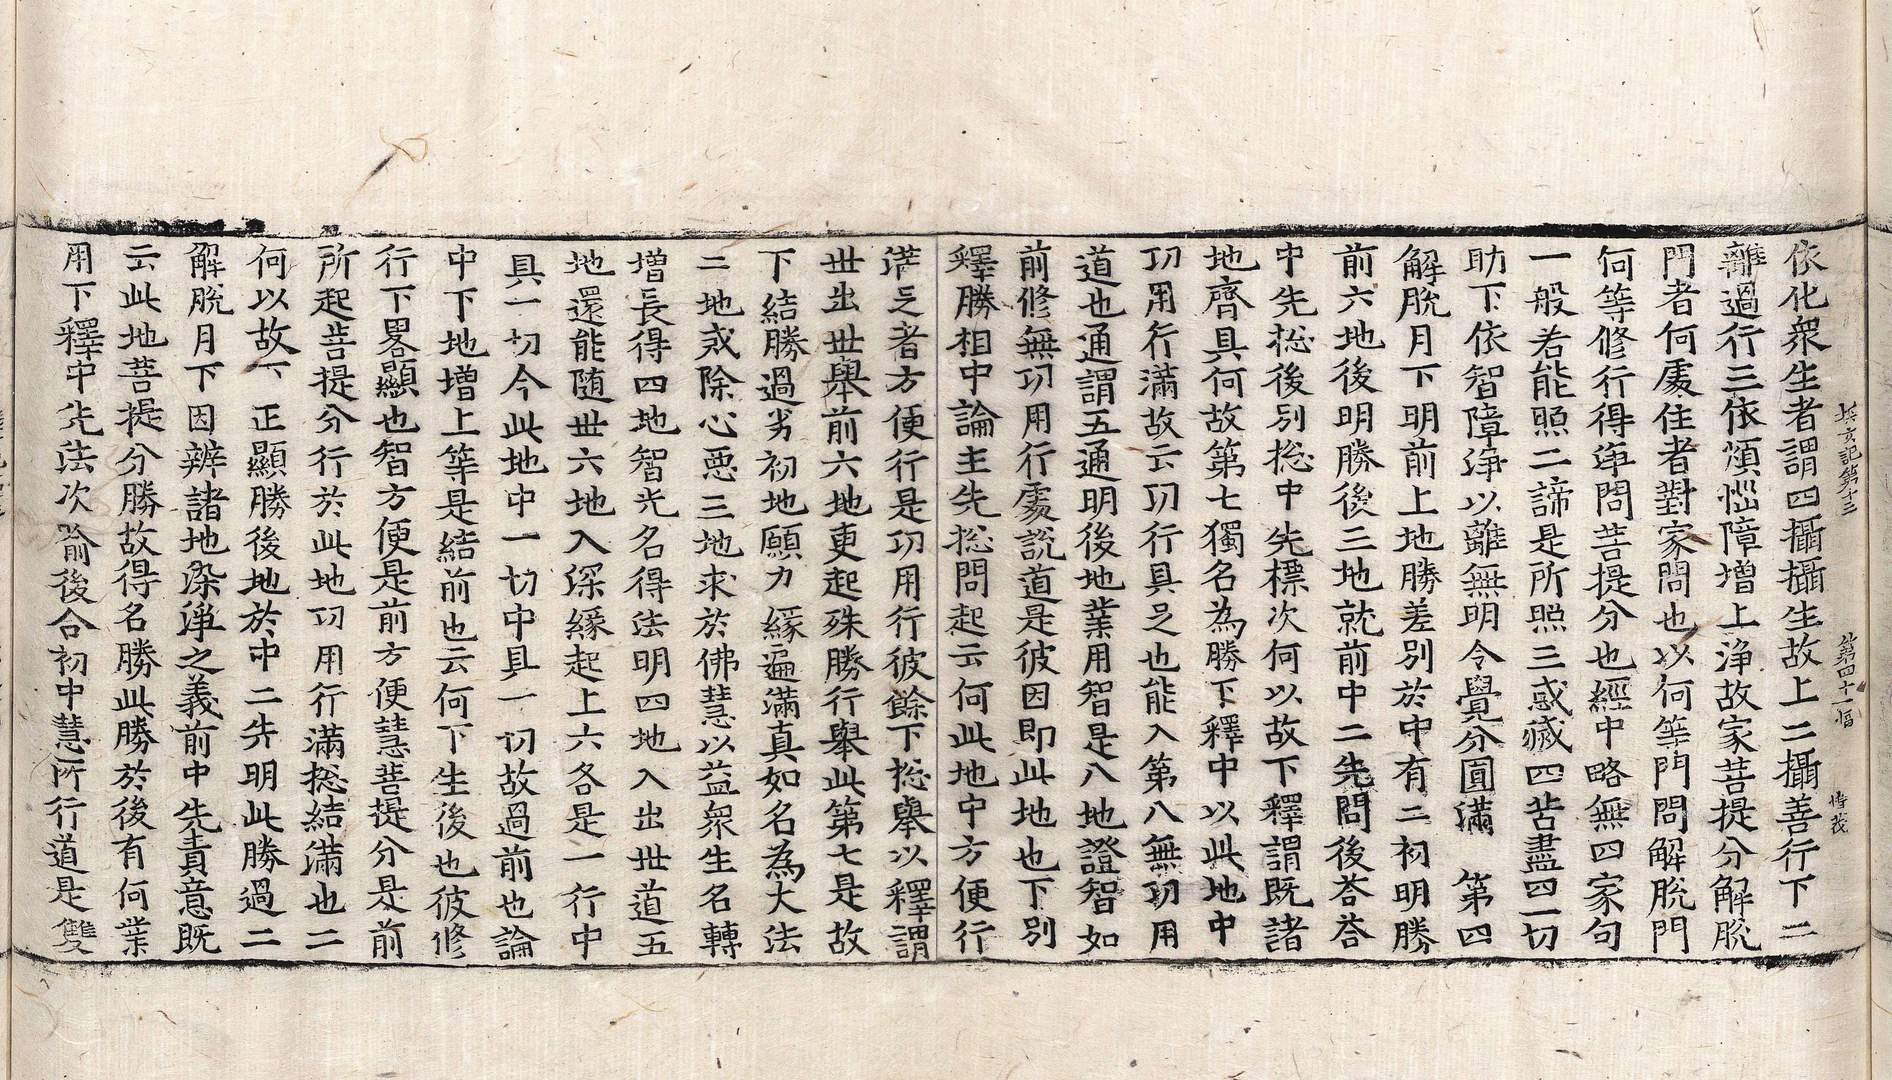 依化衆生者謂四攝攝生故上二攝善行下二
離過行三依煩惱障增上淨故家菩提分解脫
門者何處住者對家問也以何等門問解脫門
何等修行得淨問菩提分也經中略無四家句
一般若能照二諦是所照三惑藏四苦盡四一切
助下依智障淨以離無明令覺分圓滿　第四
解脫月下明前上地勝差別於中有二初明勝
前六地後明勝後三地就前中二先問後荅荅
中先捴後別捴中先標次何以故下釋謂旣諸
地齊具何故第七獨名為勝下釋中以此地中
功用行滿故云功行具足也能入第八無功用
道也通謂五通明後地業用智是八地證智如
前修無功用行處說道是彼因即此地也下別
釋勝相中論主先捴問起云何此地中方便行
滿足者方便行是功用行彼餘下捴舉以釋謂
世出世舉前六地更起殊勝行舉此第七是故
下結勝過劣初地願力緣遍滿真如名為大法
二地戒除心惡三地求於佛慧以益衆生名轉
增長得四地智光名得法明四地入出世道五
地還能隨世六地入深緣起上六各是一行中
具一切今此地中一切中具一切故過前也論
中下地增上等是結前也云何下生後也彼修
行下畧顯也智方便是前方便慧菩提分是前
所起菩提分行於此地功用行滿捴結滿也二
何以故下正顯勝後地於中二先明此勝過二
解脫月下因辨諸地染淨之義前中先責意旣
云此地菩提分勝故得名勝此勝於後有何業
用下釋中先法次喻後合初中慧所行道是雙
第四十一幅